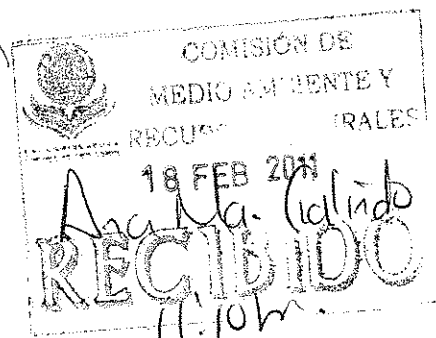 COMISIÓN DE
MEDIO AMBIENTE Y
RECURSOS NATURALES
18 FEB 2011
Ana Ma.
RECIBIDO